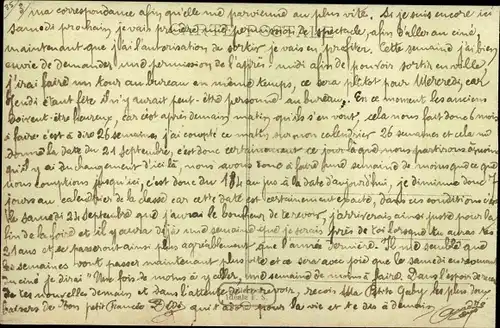 35/3/ ma correspondance afin qu'elle me parvienne au plus vite. Si je suis encore ici
samedi prochain je vais prendre une permission de spectacle, afin d'aller au ciné
maintenant que j'ai l'autorisation de sortir je vais en profiter. Cette semaine j'ai bien
envie de demander une permission de l'après midi afin de pouvoir sortir en ville,
j'irai faire un tour au bureau en même temps, ce sera plutôt pour Mercredi car
Jeudi étant fête il n'y aurait peut-être personne au bureau. En ce moment les anciens
doivent être heureux, car c'est après demain matin qu'ils s'en vont, cela nous fait donc 6 mois
à faire c'est à dire 26 semaines, j'ai compté ce matin sur mon calendrier 26 semaines et cela me
donne la date du 21 Septembre, c'est donc certainement ce jour là que nous partirons à moins
qu'il y ai du changement d'ici là, nous avons donc à faire une semaine de moins que ce que
nous comptions jusqu'ici, c'est donc du 184 au jus à la date d'aujourd'hui, je diminue donc 7
jours au calendrier de la classe car cette date est certainement exacte, dans ces conditions c'est
le samedi 24 Septembre que j'aurai le bonheur de te revoir, j'arriverais ainsi juste pour la
fin de la foire et il y aura déjà une semaine que je serais près de toi lorsque tu auras tes
21 ans et se passeront ainsi plus agréablement que l'année dernière. Il me semble que
semaines vont passer maintenant plus vite et ce sera avec joie que le samedi en revenant
du ciné je dirai "Une fois de moins à y aller, une semaine de moins à faire. Dans l'espoir de
tes nouvelles demain et dans l'attente de te revoir, reçois Ma Petite Gaby les plus doux
baisers de ton petit fiancé Dédé qui t'adore pour la vie et te dis à demain